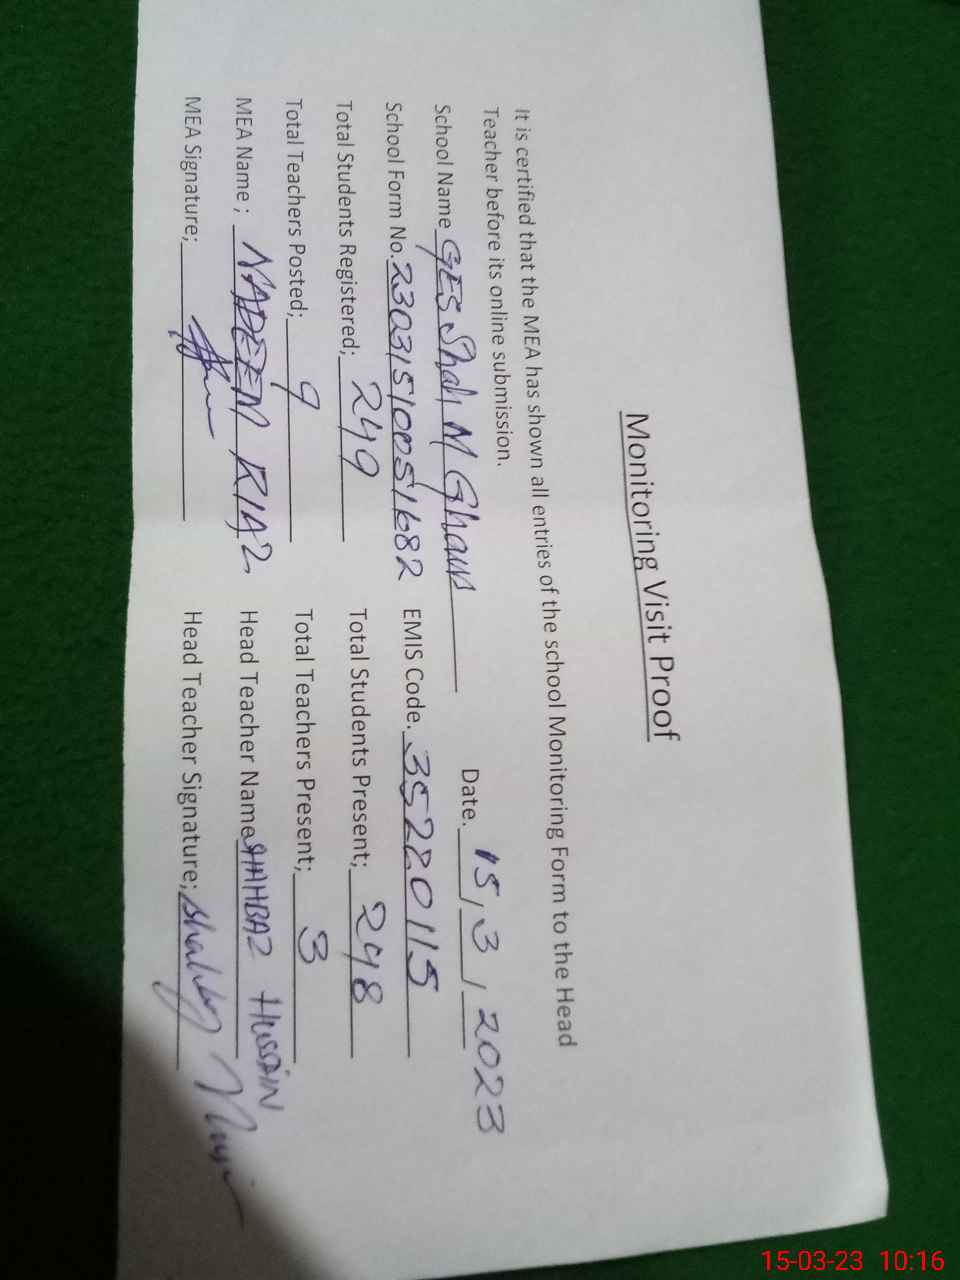 Monitoring Visit Proof
It is certified that the MEA has shown all entries of the school Monitoring Form to the Head
Teacher before its online submission.
School Name GES Shah M Ghaus Date. 15/3/2023
School Form No. 23031510051682 EMIS Code. 35220115
Total Students Registered; 249 Total Students Present; 248
Total Teachers Posted; 9 Total Teachers Present; 3
MEA Name; NADEEM RIAZ Head Teacher Name SHAHBAZ HUSSAIN
MEA Signature; Head Teacher Signature;
15-03-23 10:16